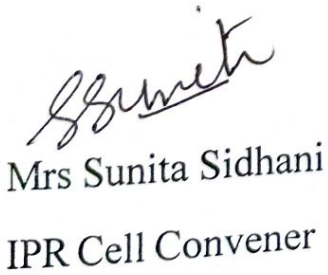 SSunita
Mrs Sunita Sidhani
IPR Cell Convener